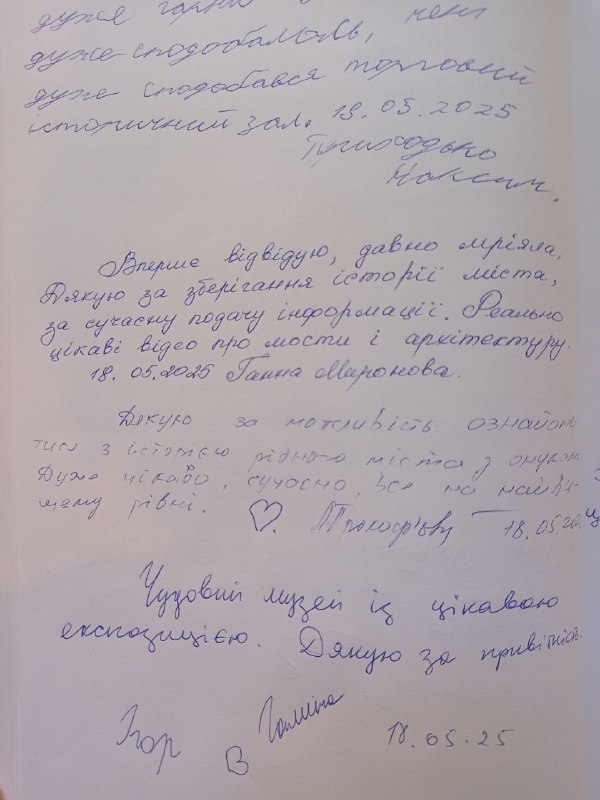 дуже гарна
дуже сподобалось, мені
дуже сподобався торговий
історичний зал. 18.05.2025
Приходько
Максим.
Вперше відвідую, давно мріяла.
Дякую за зберігання історії міста,
за сучасну подачу інформації. Реально
цікаві відео про мости і архітектуру.
18.05.2025 Ганна Миронова.
Дякую за можливість ознайоми
тися з історією рідного міста з онуком
Дуже цікаво, сучасно, все на найви
щому рівні. 18.05.20
Чудовий музей із цікавою
експозицією. Дякую за привітність
Ігор
Галина
18.05.25